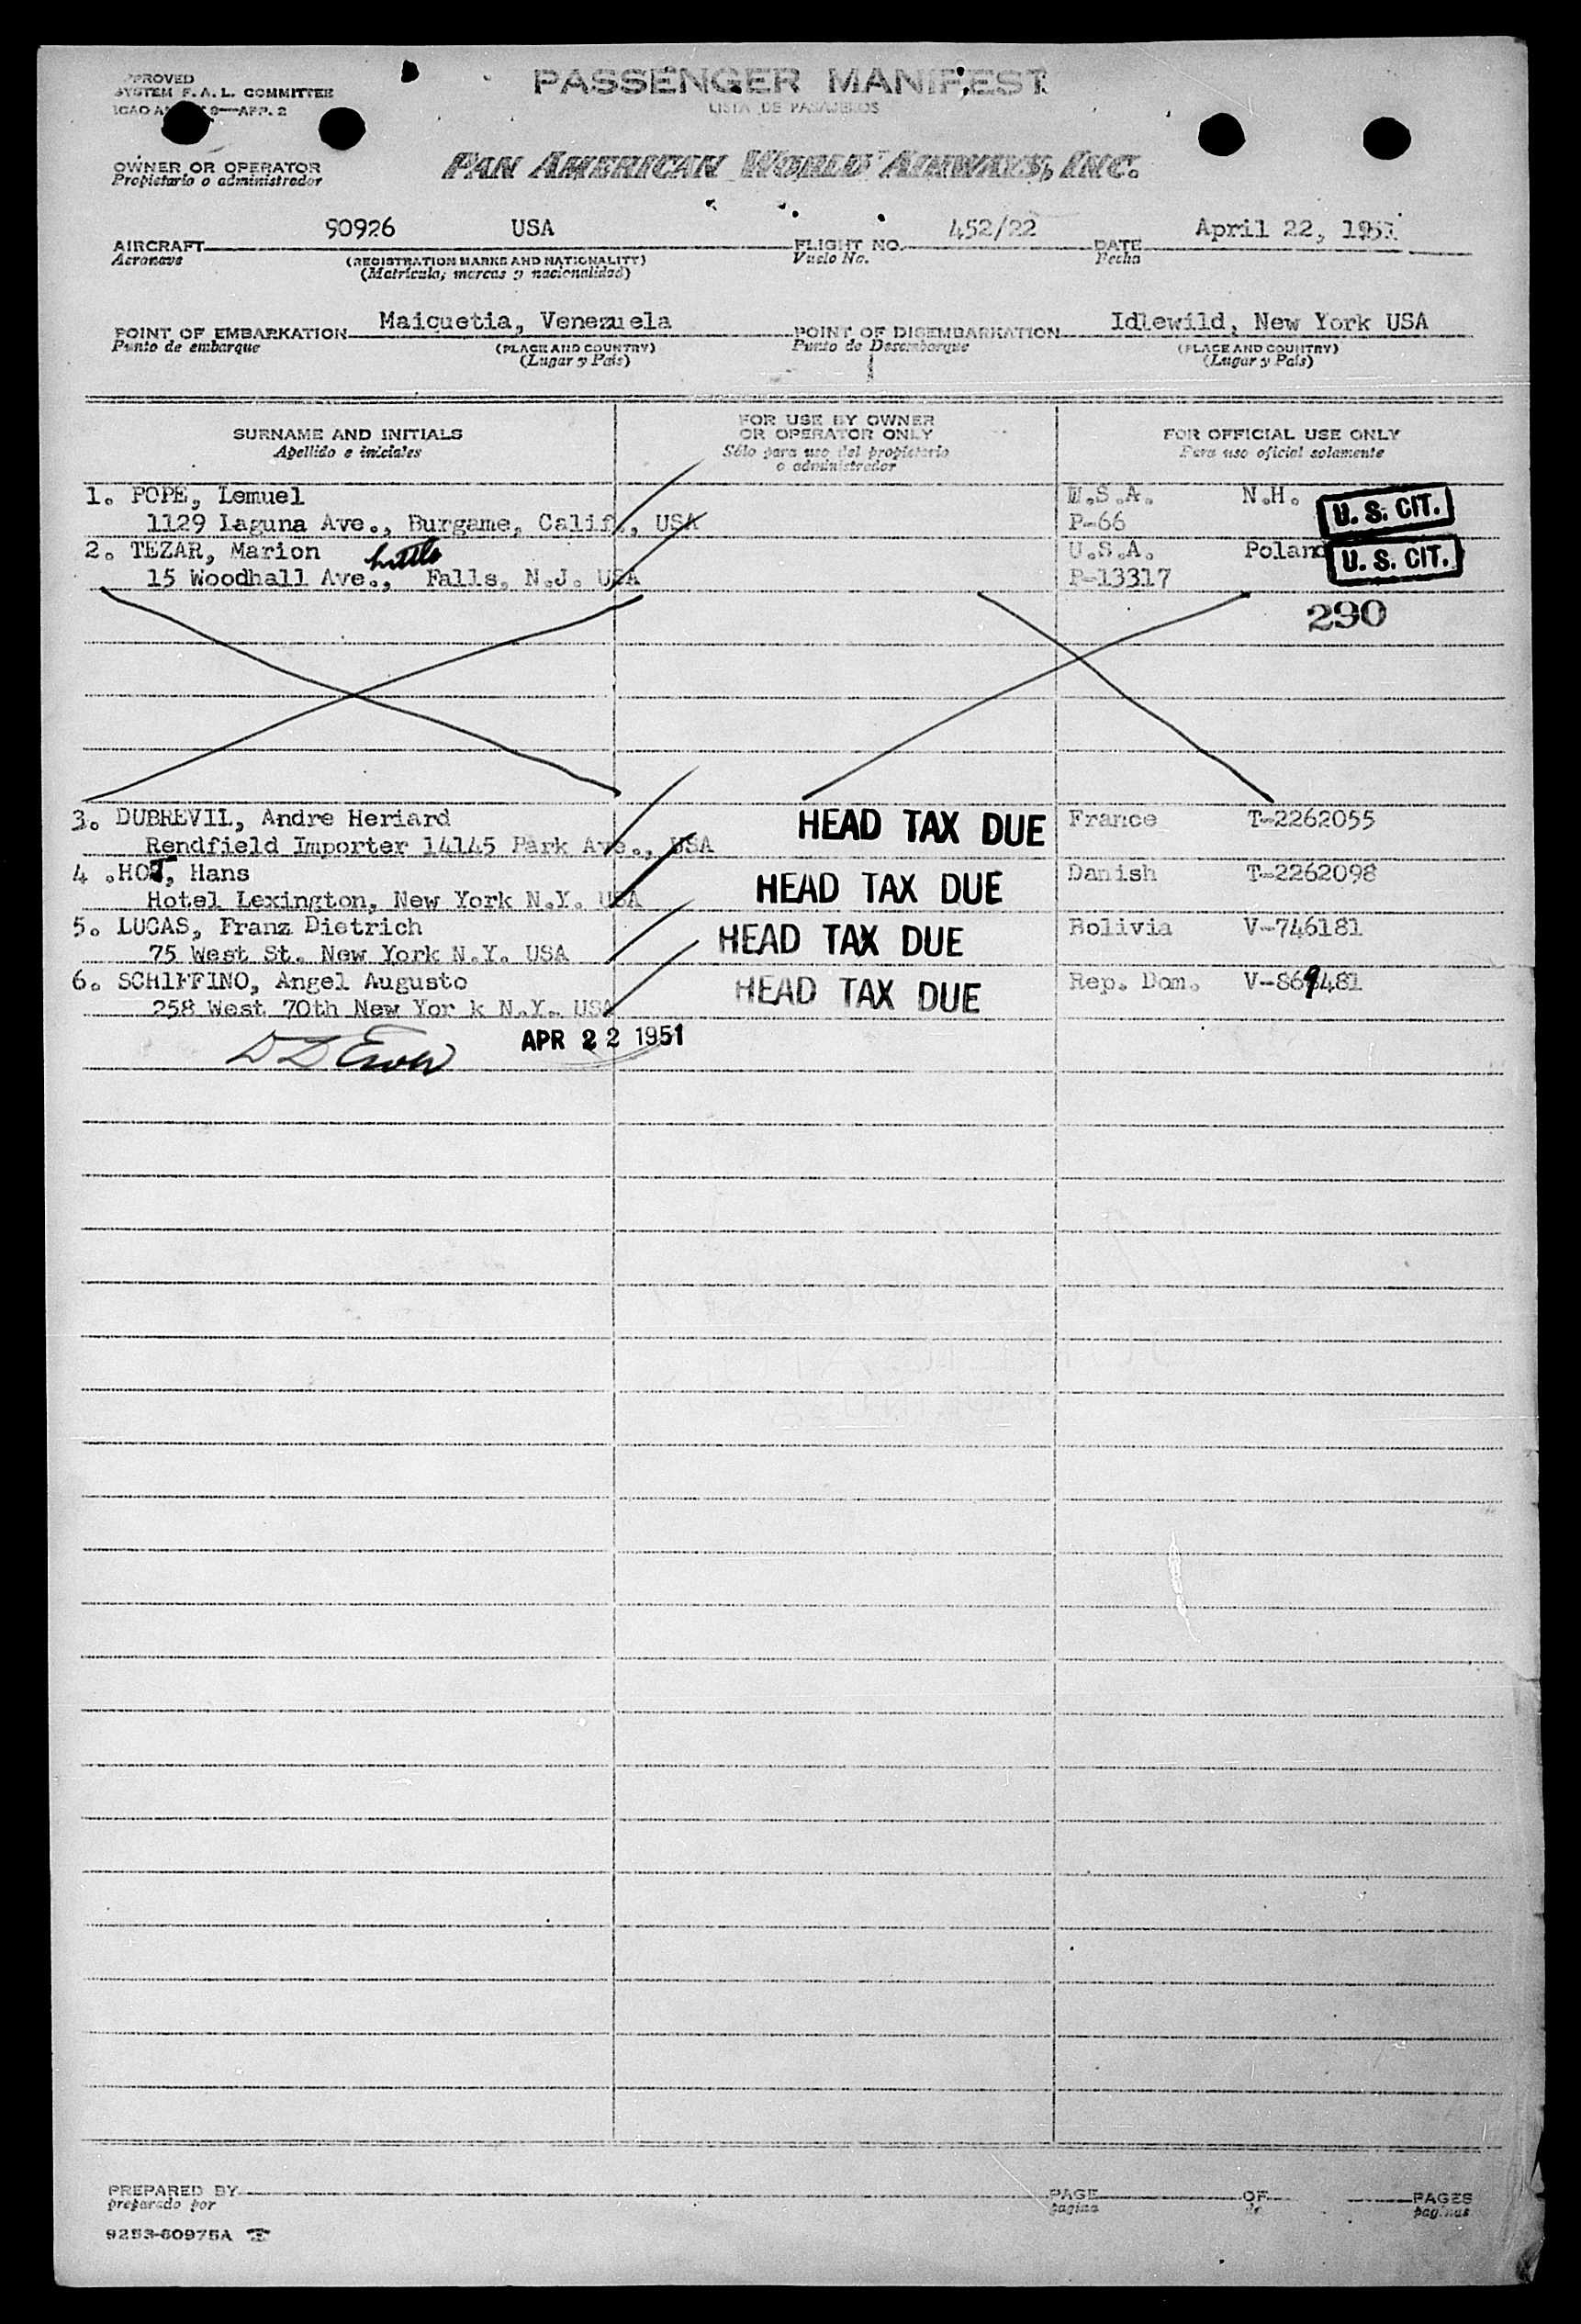 PROVED
SYSTEM F. A. L. COMMITTEE
ICAO A 9—APP. 2
PASSENGER MANIFEST
LISTA DE PASAJEROS
OWNER OR OPERATOR
Propietario o administrador
PAN AMERICAN WORLD AIRWAYS, INC.
AIRCRAFT 90926 USA FLIGHT NO. 452/22 DATE April 22, 1951
Aeronave (REGISTRATION MARKS AND NATIONALITY) Vuelo No. Fecha
(Matricula, marcas y nacionalidad)
POINT OF EMBARKATION Maiquetia, Venezuela POINT OF DISEMBARKATION Idlewild, New York USA
Punto de embarque (PLACE AND COUNTRY) Punto de Desembarque (PLACE AND COUNTRY)
(Lugar y País) (Lugar y País)
SURNAME AND INITIALS FOR USE BY OWNER OR OPERATOR ONLY FOR OFFICIAL USE ONLY
Apellido e iniciales Sólo para uso del propietario o administrador Para uso oficial solamente
1. POPE, Lemuel U.S.A. N.H. U. S. CIT.
1129 Laguna Ave., Burgame, Calif., USA P-66
2. TEZAR, Marion U.S.A. Poland U. S. CIT.
15 Woodhall Ave., little Falls, N.J. USA P-13317
290
3. DUBREVIL, Andre Heriard HEAD TAX DUE France T-2262055
Rendfield Importer 14145 Park Ave., USA
4 .HOT, Hans HEAD TAX DUE Danish T-2262098
Hotel Lexington, New York N.Y. USA
5. LUCAS, Franz Dietrich HEAD TAX DUE Bolivia V-746181
75 West St. New York N.Y. USA
6. SCHIFFINO, Angel Augusto HEAD TAX DUE Rep. Dom. V-869481
258 West 70th New Yor k N.Y. USA
APR 22 1951
PREPARED BY PAGE OF PAGES
preparado por pagina de paginas
9253-60975A